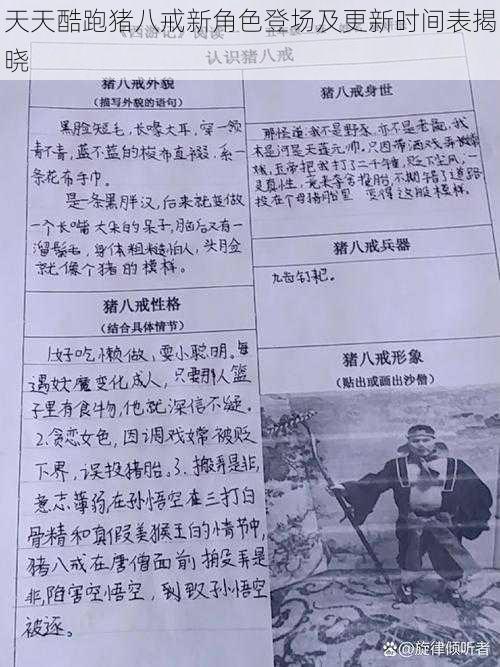 天天酷跑猪八戒新角色登场及更新时间表揭
晓
《西游记》阅读
认识猪八戒
猪八戒外貌
(描写外貌的语句)
黑脸短毛,长喙大耳,穿一领
青不青,蓝不蓝的梭布直裰,系一
条花布手巾。
是一条黑胖汉,后来就变做
一个长嘴大耳的呆子,脑后又有一
溜鬃毛,身体粗糙怕人,头脸
就像个猪的模样。
猪八戒性格
(结合具体情节)
1.好吃懒做,耍小聪明。每
遇妖魔变化成人,只要那人篮
子里有食物,他就深信不疑。
2.贪恋女色,因调戏嫦被贬
下界,误投猪胎。3.搬弄是非,
意志薄弱,在孙悟空在三打白
骨精和真假美猴王的情节中,
猪八戒在唐僧面前搬弄是
非,陷害空悟空,到致孙悟空
被逐。
猪八戒身世
那怪道:我不是野豕,亦不是老彘,我
本是河是天蓬元帅,只因带酒戏弄嫦
娥,玉帝把我打了二千锤,贬下尘凡,一
灵真性,竟来夺舍投胎,不期错了道路
投在个母猪胎里 变得这般模样。
猪八戒兵器
九齿钉耙。
猪八戒形象
(贴出或画出沙僧)
旋律倾听者